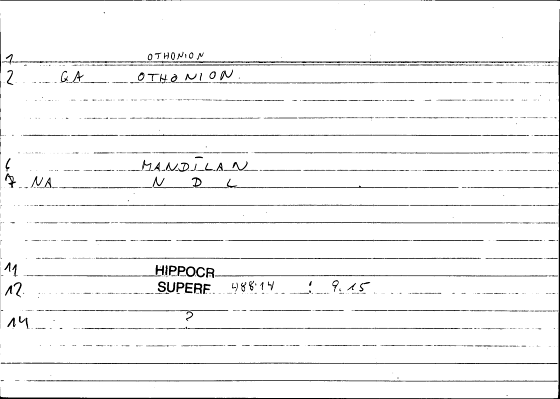 1 OTHONION
2 GA OTHONION
6 MANDĪLAN
7 NA N D L
11 HIPPOCR
12 SUPERF 488.14 : 9.15
14 ?